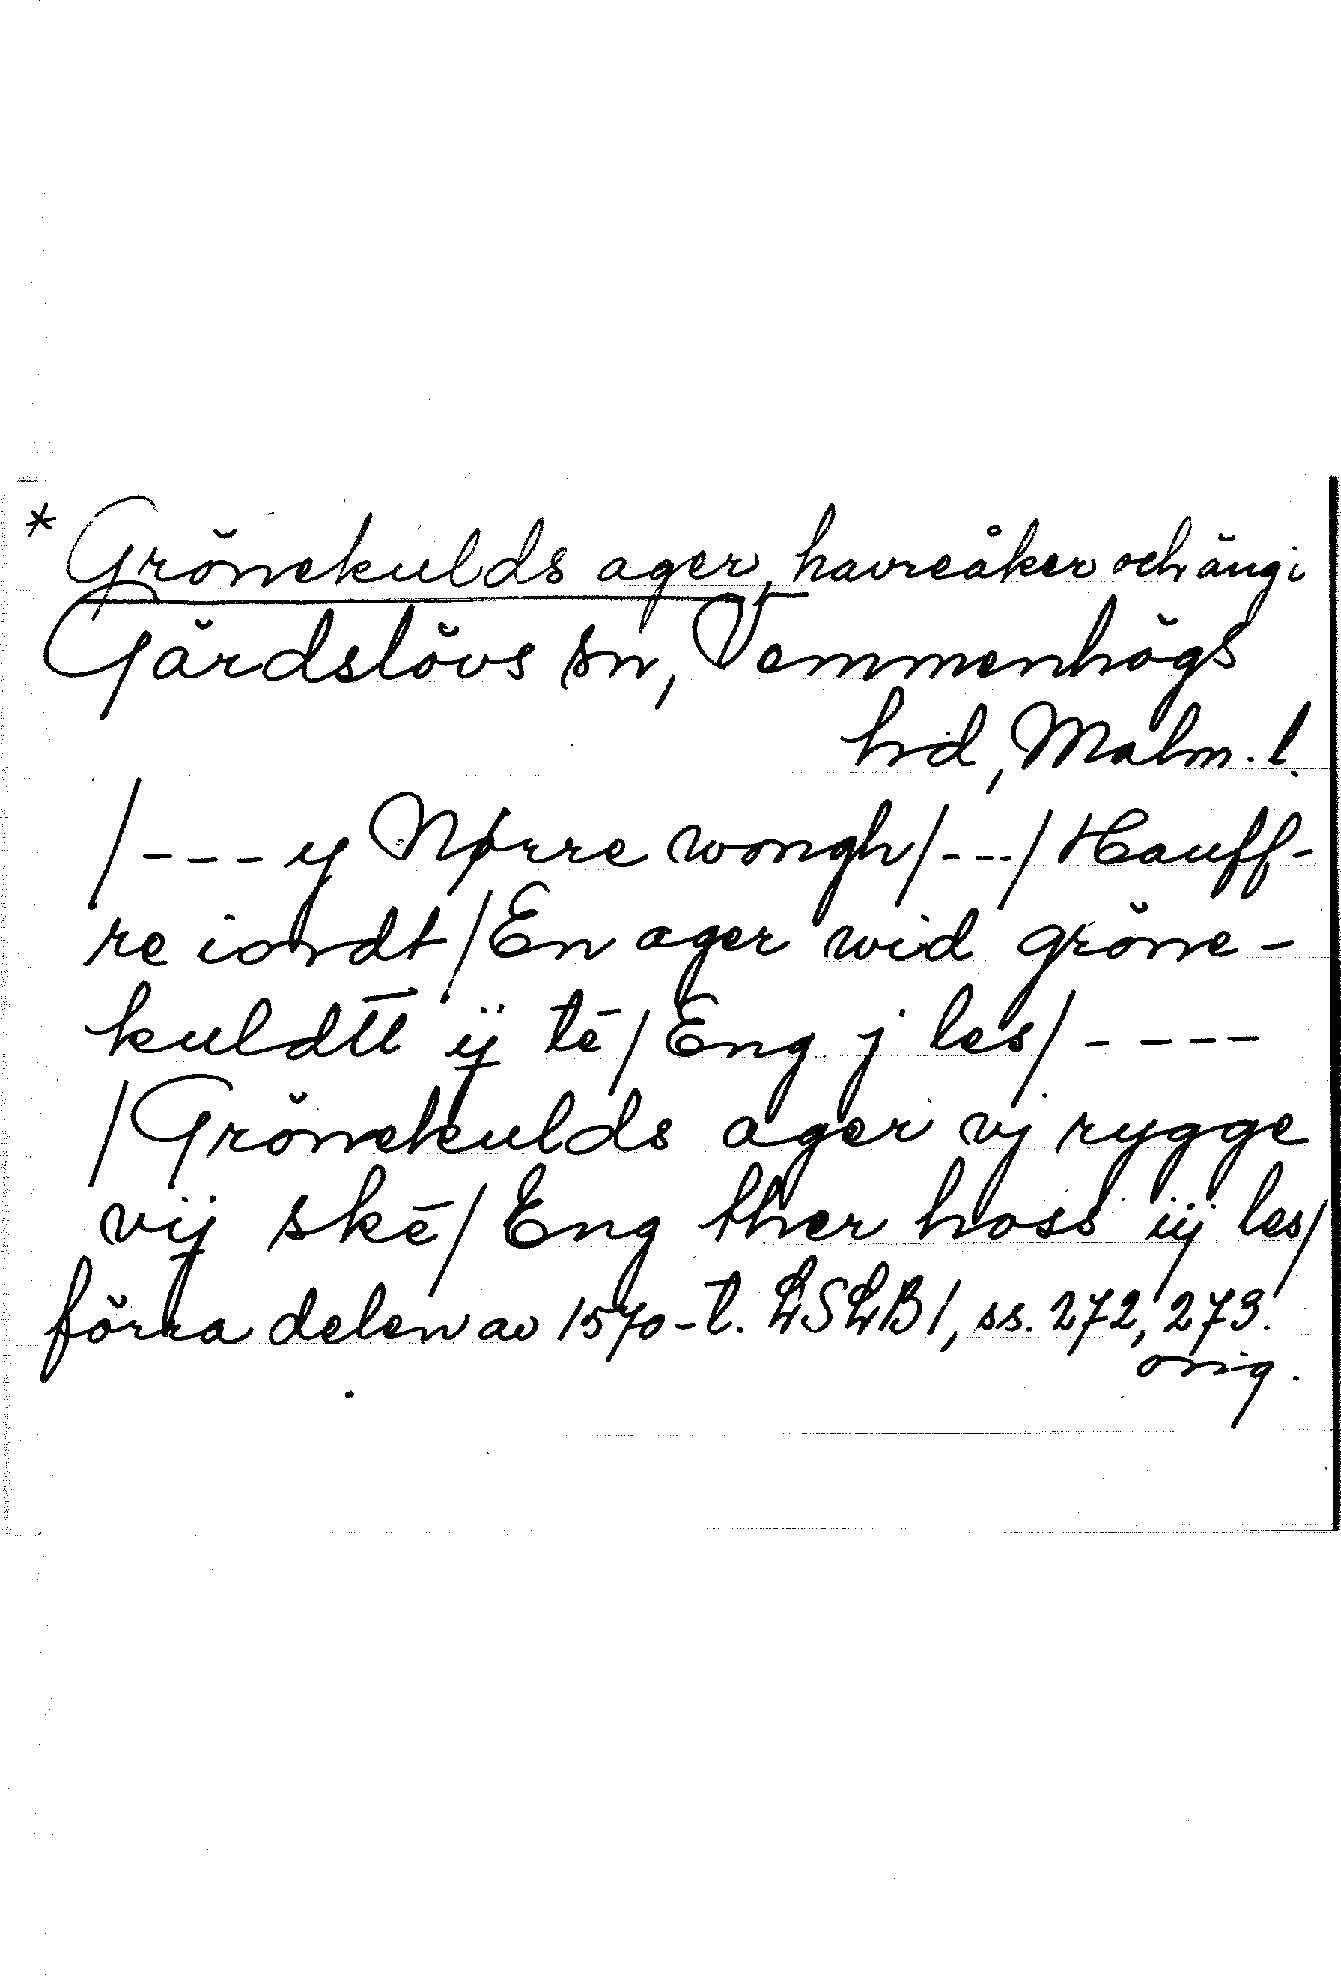 * Grönekulds ager, havreåker och äng i
Gärdslövs sn, Vemmenhögs
hd, Malm. l.
/---y Nørre wongh/---/Hauff-
re iordt/En ager wid gröne-
kuldtt ij te̅/Eng j les/----
/Grönekulds ager vj rygge
vij ske̅/Eng ther hoss iij les/
förra delen av 1570-t. LSLB1, ss. 272, 273.
orig.